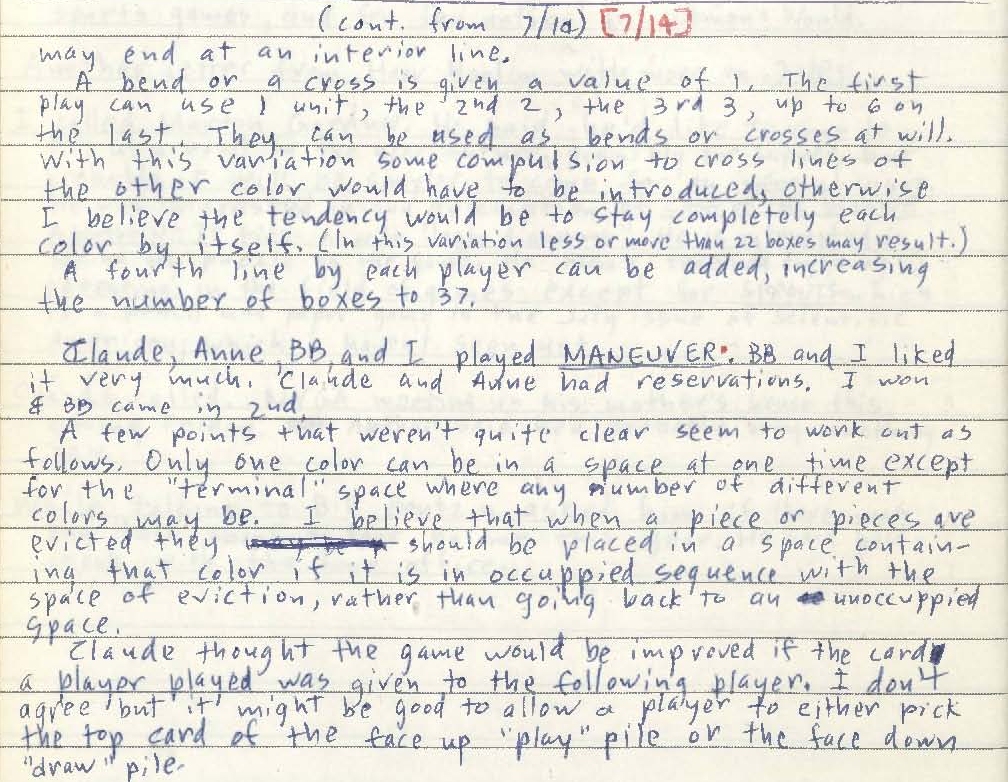 (cont. from 7/14) [7/14]
may end at an interior line.
A bend or a cross is given a value of 1. The first
play can use 1 unit, the 2nd 2, the 3rd 3, up to 6 on
the last. They can be used as bends or crosses at will.
With this variation some compulsion to cross lines of
the other color would have to be introduced, otherwise
I believe the tendency would be to stay completely each
color by itself. (In this variation less or more than 22 boxes may result.)
A fourth line by each player can be added, increasing
the number of boxes to 37.
Claude, Anne, BB, and I played MANEUVER. BB and I liked
it very much. Claude and Anne had reservations. I won
& BB came in 2nd.
A few points that weren't quite clear seem to work out as
follows. Only one color can be in a space at one time except
for the "terminal" space where any number of different
colors may be. I believe that when a piece or pieces are
evicted they should be placed in a space contain-
ing that color if it is in occuppied sequence with the
space of eviction, rather than going back to an unoccuppied
space.
Claude thought the game would be improved if the card
a player played was given to the following player. I don't
agree but it might be good to allow a player to either pick
the top card of the face up "play" pile or the face down
"draw" pile.